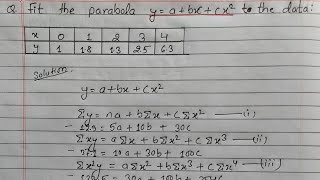 Q Fit the parabola y = a+bx+cx² to the data:
x 0 1 2 3 4
y 1 1.8 1.3 2.5 6.3
Solution.
y = a+bx+cx²
Σy = na + bΣx + cΣx² — (i)
12.9 = 5a + 10b + 30c
Σxy = aΣx + bΣx² + cΣx³ — (ii)
37.1 = 10a + 30b + 100c
Σx²y = aΣx² + bΣx³ + cΣx⁴ — (iii)